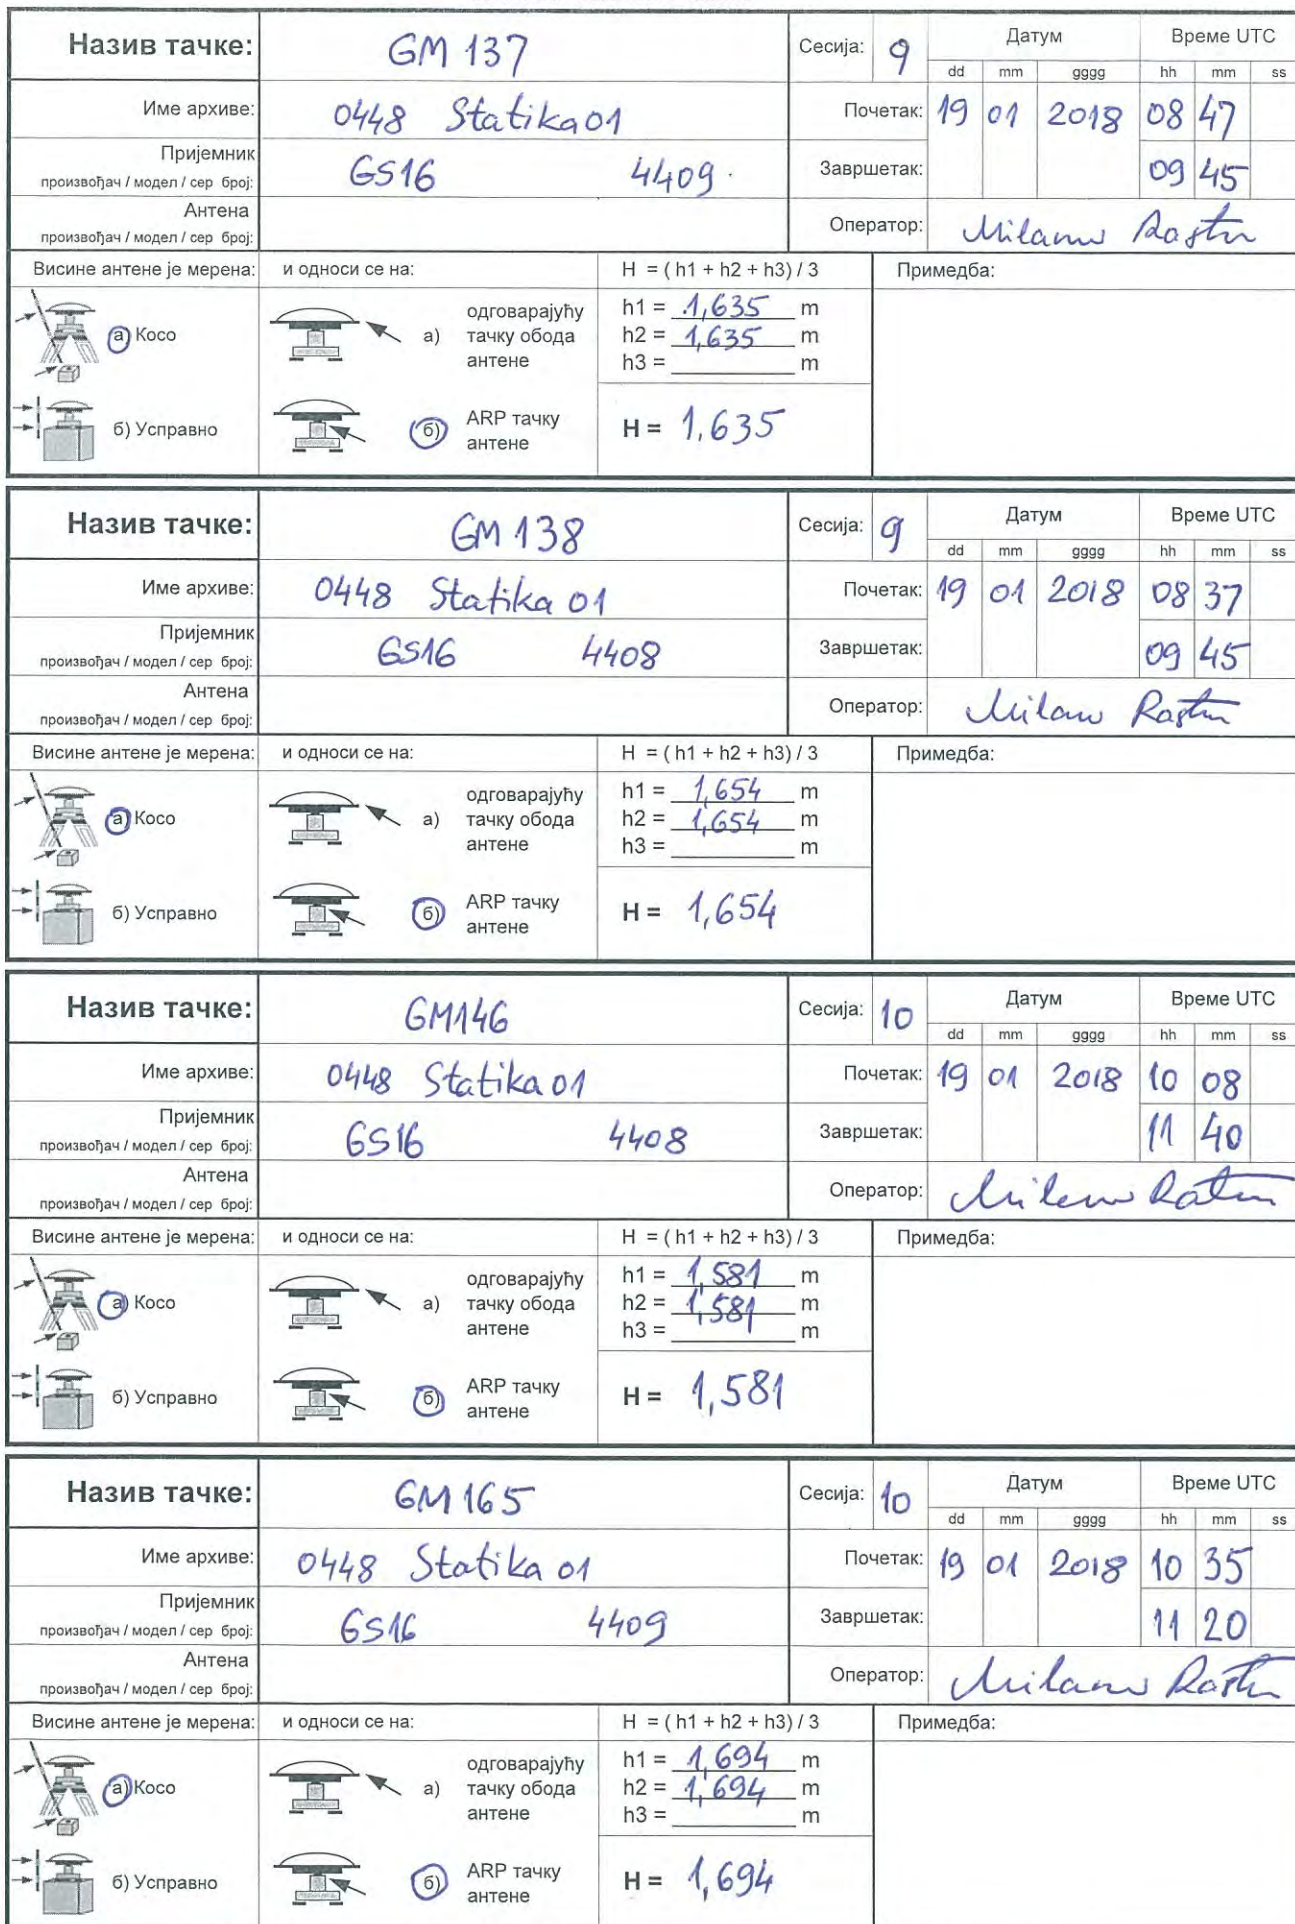 Назив тачке: GM 137 Сесија: 9 Датум Време UTC
dd mm gggg hh mm ss
Име архиве: 0448 Statika 01 Почетак: 19 01 2018 08 47
Пријемник
произвођач / модел / сер број: GS16 4409 Завршетак: 09 45
Антена
произвођач / модел / сер број: Оператор: Milan
Висине антене је мерена: и односи се на: H = ( h1 + h2 + h3) / 3 Примедба:
а) Косо а) одговарајућу тачку обода антене
h1 = 1,635 m
h2 = 1,635 m
h3 = m
б) Усправно б) ARP тачку антене H = 1,635
Назив тачке: GM 138 Сесија: 9 Датум Време UTC
dd mm gggg hh mm ss
Име архиве: 0448 Statika 01 Почетак: 19 01 2018 08 37
Пријемник
произвођач / модел / сер број: GS16 4408 Завршетак: 09 45
Антена
произвођач / модел / сер број: Оператор: Milan
Висине антене је мерена: и односи се на: H = ( h1 + h2 + h3) / 3 Примедба:
а) Косо а) одговарајућу тачку обода антене
h1 = 1,654 m
h2 = 1,654 m
h3 = m
б) Усправно б) ARP тачку антене H = 1,654
Назив тачке: GM146 Сесија: 10 Датум Време UTC
dd mm gggg hh mm ss
Име архиве: 0448 Statika 01 Почетак: 19 01 2018 10 08
Пријемник
произвођач / модел / сер број: GS16 4408 Завршетак: 11 40
Антена
произвођач / модел / сер број: Оператор: Milan
Висине антене је мерена: и односи се на: H = ( h1 + h2 + h3) / 3 Примедба:
а) Косо а) одговарајућу тачку обода антене
h1 = 1,581 m
h2 = 1,581 m
h3 = m
б) Усправно б) ARP тачку антене H = 1,581
Назив тачке: GM 165 Сесија: 10 Датум Време UTC
dd mm gggg hh mm ss
Име архиве: 0448 Statika 01 Почетак: 19 01 2018 10 35
Пријемник
произвођач / модел / сер број: GS16 4409 Завршетак: 11 20
Антена
произвођач / модел / сер број: Оператор: Milan
Висине антене је мерена: и односи се на: H = ( h1 + h2 + h3) / 3 Примедба:
а) Косо а) одговарајућу тачку обода антене
h1 = 1,694 m
h2 = 1,694 m
h3 = m
б) Усправно б) ARP тачку антене H = 1,694